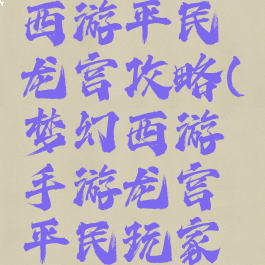 西游平民
龙宫攻略(
梦幻西游
手游龙宫
平民玩家